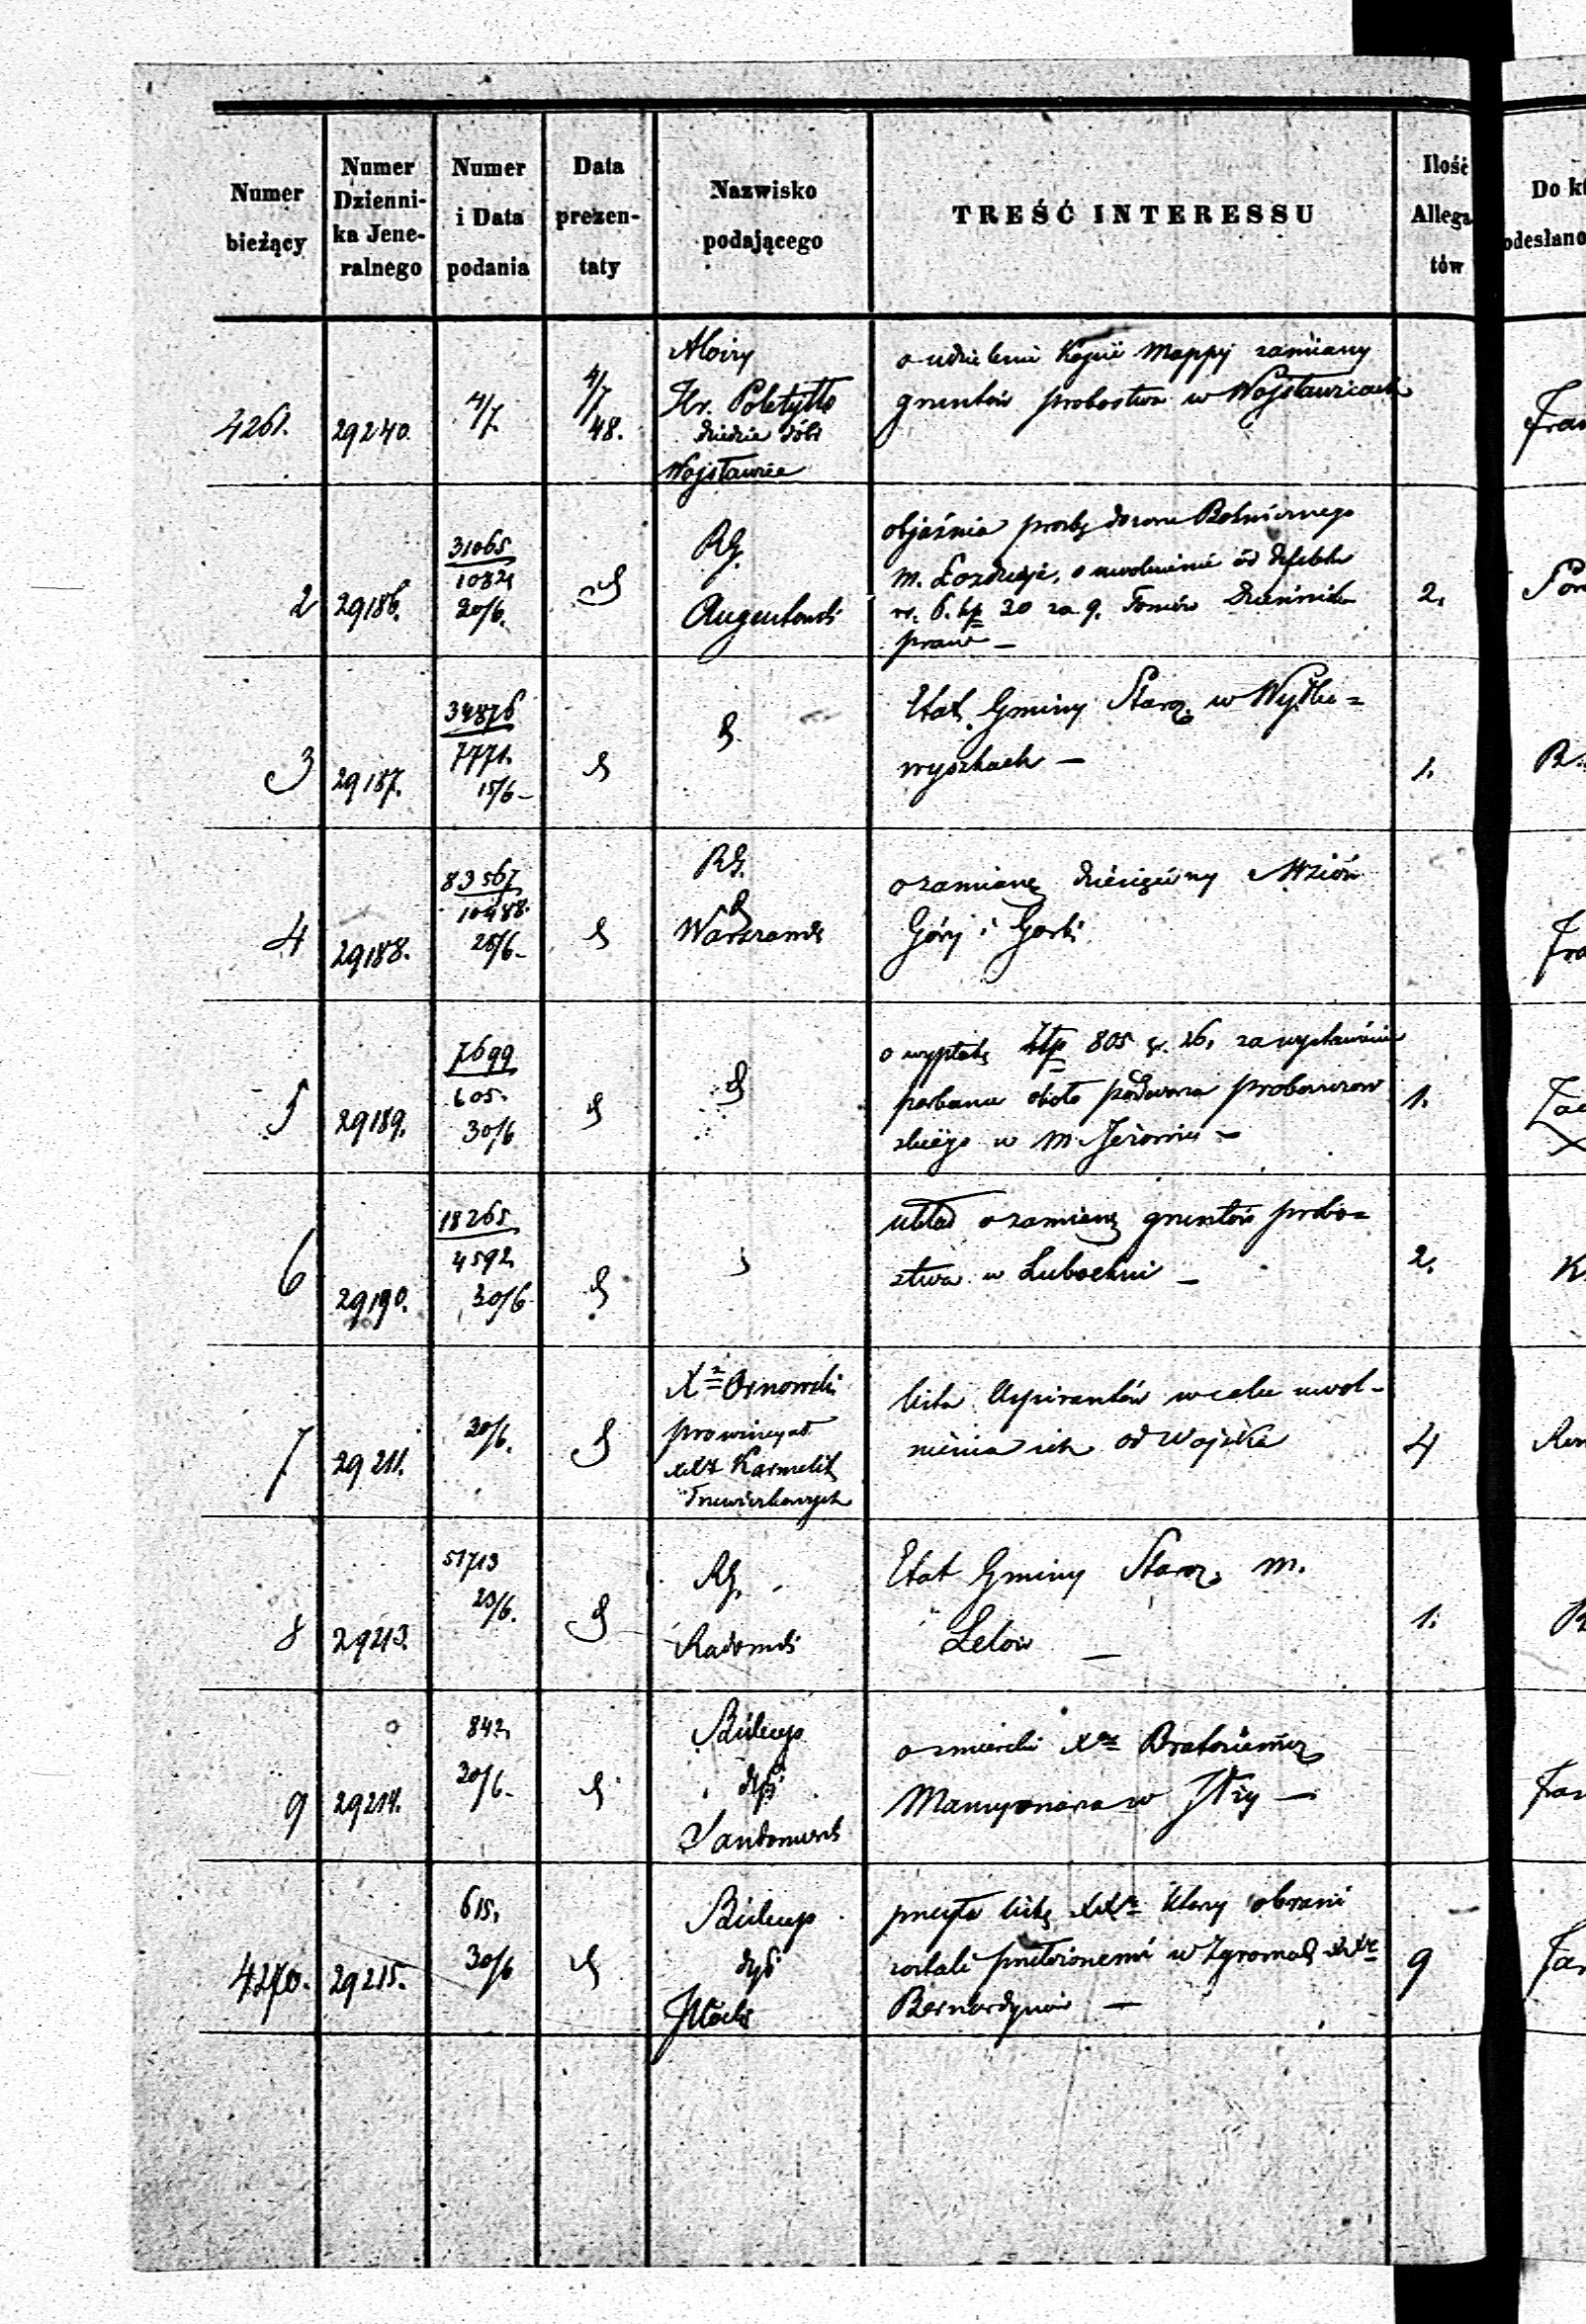 Numer bieżący
Numer Dzienni- ka Jene- ralnego
Numer i Data podania
Data prezen- taty
Nazwisko podającego
TREŚĆ INTERESSU
Ilość Allega tów
Do kt
odesłano
4261. 29240. 4/7. 4/7 48.
Aloizy
Hr. Poletyłło
dziedzic dóbr
Wojsławice
o udzielenie Kopii Mappy zamiany
gruntów probostwa w Wojsławicach
2 29186. 31065
20/6.
RG.
Augustowski
objaśnia prośbę dozoru Bożniczego
m. Łozdzieje, o uwolnienie od
20 za 9. Tomów Dziennika
praw —
2.
3 29187. 34876
7771.
15/6 —
Etat Gminy Staroz. w Wyłko=
wyszkach —
1.
4 29188. 83567
10488.
28/6 —
RG.
Warszawski
o zamianę dziesięciny
Góry i Gorki
5 29189. 7699
605.
30/6
o wypłatę złp 805 gr. 26. za wystawienie
parkanu około podwórza probosczow
skiego w m. Jeżowie —
1.
6 29190. 18265
4592
30/6
układ o zamianę gruntów probo=
stwa w Lubochni —
2.
7 29211. 30/6.
prowincyał
Karmelit
Trzewiczkowych
lista Aspirantów w celu uwol-
nienia ich od Wojska
4
8 29213. 51713
23/6.
RG.
Radomski
Etat Gminy Staroz. m.
Lelow —
1.
9 29214. 842
30/6 —
Biskup
dyć
Sandomirsk
o śmierci
Mansyonarza w Iłży —
4270. 29215. 615,
30/6
Biskup
dyć
Płocki
przesyła listę którzy obrani
zostali przełożonemi w Zgromadz
Bernardynów —
9